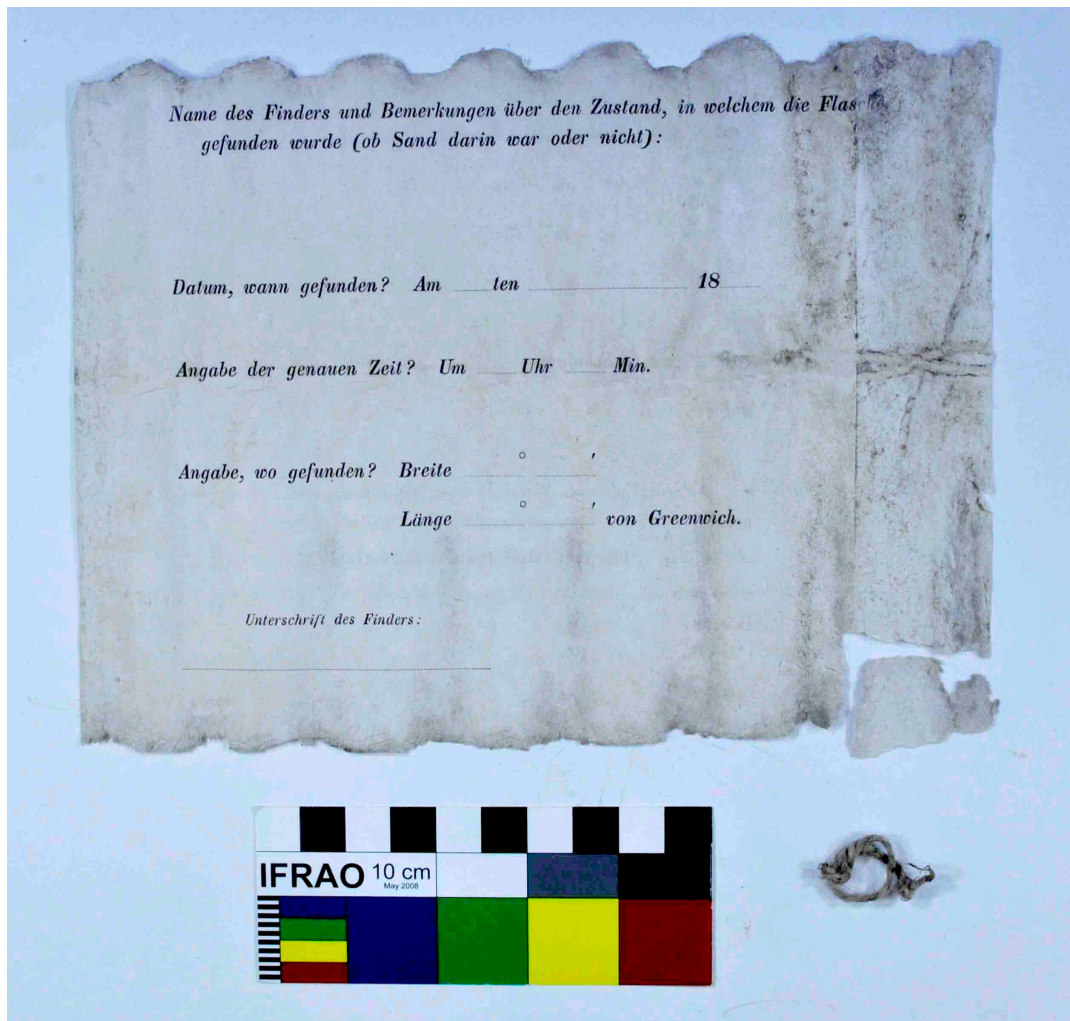 Name des Finders und Bemerkungen über den Zustand, in welchem die Flasche
gefunden wurde (ob Sand darin war oder nicht):
Datum, wann gefunden? Am ten 18
Angabe der genauen Zeit? Um Uhr Min.
Angabe, wo gefunden? Breite ° ′
Länge ° ′ von Greenwich.
Unterschrift des Finders:
IFRAO 10 cm
May 2008